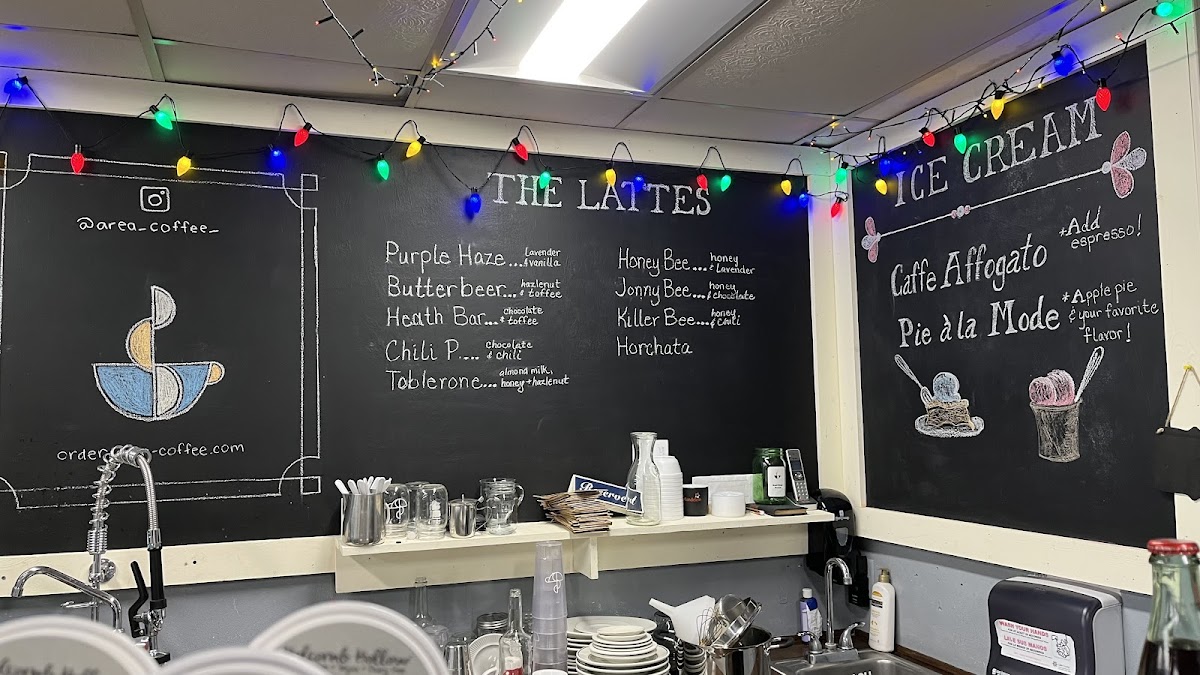 @area_coffee_
THE LATTES
Purple Haze... Lavender & vanilla
Butterbeer... hazlenut & toffee
Heath Bar... chocolate & toffee
Chili P.... chocolate & chili
Toblerone... almond milk, honey + hazlenut
Honey Bee... honey & lavender
Jonny Bee... honey & chocolate
Killer Bee... honey & chili
Horchata
ICE CREAM
Caffe Affogato *Add espresso!
Pie à la Mode *Apple pie & your favorite flavor!
Reserved
WASH YOUR HANDS
LAVE SUS MANOS